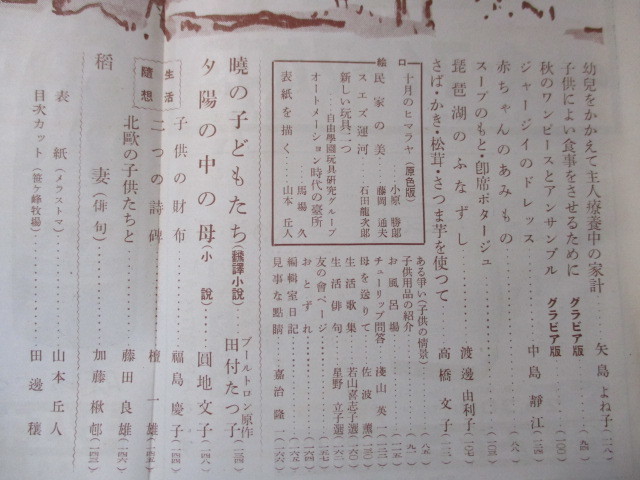 幼兒をかかえて主人療養中の家計……矢島よね子(一二八)
子供によい食事をさせるために グラビア版(九四)
秋のワンピースとアンサンブル グラビア版(一〇〇)
ジャージイのドレッス……中島靜江(一二四)
赤ちゃんのあみもの……(八八)
スープのもと・卽席ポタージュ……(一三五)
琵琶湖のふなずし……渡邊由利子(一二七)
さば・かき・松茸・さつま芋を使つて……高橋文子(一一二)
口繪
十月のヒマラヤ(原色版)……小原勝郎
民家の美……藤岡通夫
スエズ運河……石田龍次郎
新しい玩具二つ
……自由學園玩具硏究グループ
オートメーション時代の臺所……馬場久
表紙を描く……山本丘人
ある爭い(子供の情景)……(八五)
子供用品の紹介……(九一)
お風呂場……(一一五)
チューリップ問答……淺山英一(一二三)
母を送りて……佐波薫(一三二)
生活歌集……若山喜志子選(一六〇)
生活俳句……星野立子選(一六二)
友の會ページ……(一五七)
おとずれ……(一六四)
編輯室日記……(一六五)
見事な點睛……嘉治隆一(一六六)
曉の子どもたち(飜譯小說)……ブールトロン原作 田付たつ子(一三四)
夕陽の中の母(小說)……圓地文子(一四八)
生活隨想
子供の財布……福島慶子(一四四)
二つの詩碑……檀一雄(一四五)
北歐の子供たちと……藤田良雄(一四六)
稻妻(俳句)……加藤楸邨(一四三)
表紙(メラストマ)……山本丘人
目次カット(笹ヶ峰牧場)……田邊穰